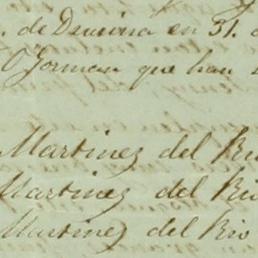 de Davison en 31.
O'Gorman que han
Martinez del Rio
Martinez del Rio
Martinez del Rio